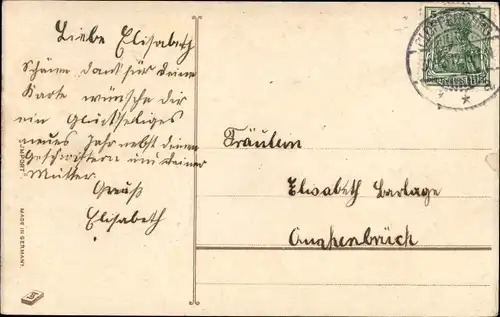 Liebe Elisabeth
Schönen dank für deine
Karte wünsche dir
ein Glückseliges
neues Jahr nebst deinen
Geschwistern und deiner
Mutter.
Gruß
Elisabeth
Fräulein
Elisabeth Barlage
IMPORT
MADE IN GERMANY.